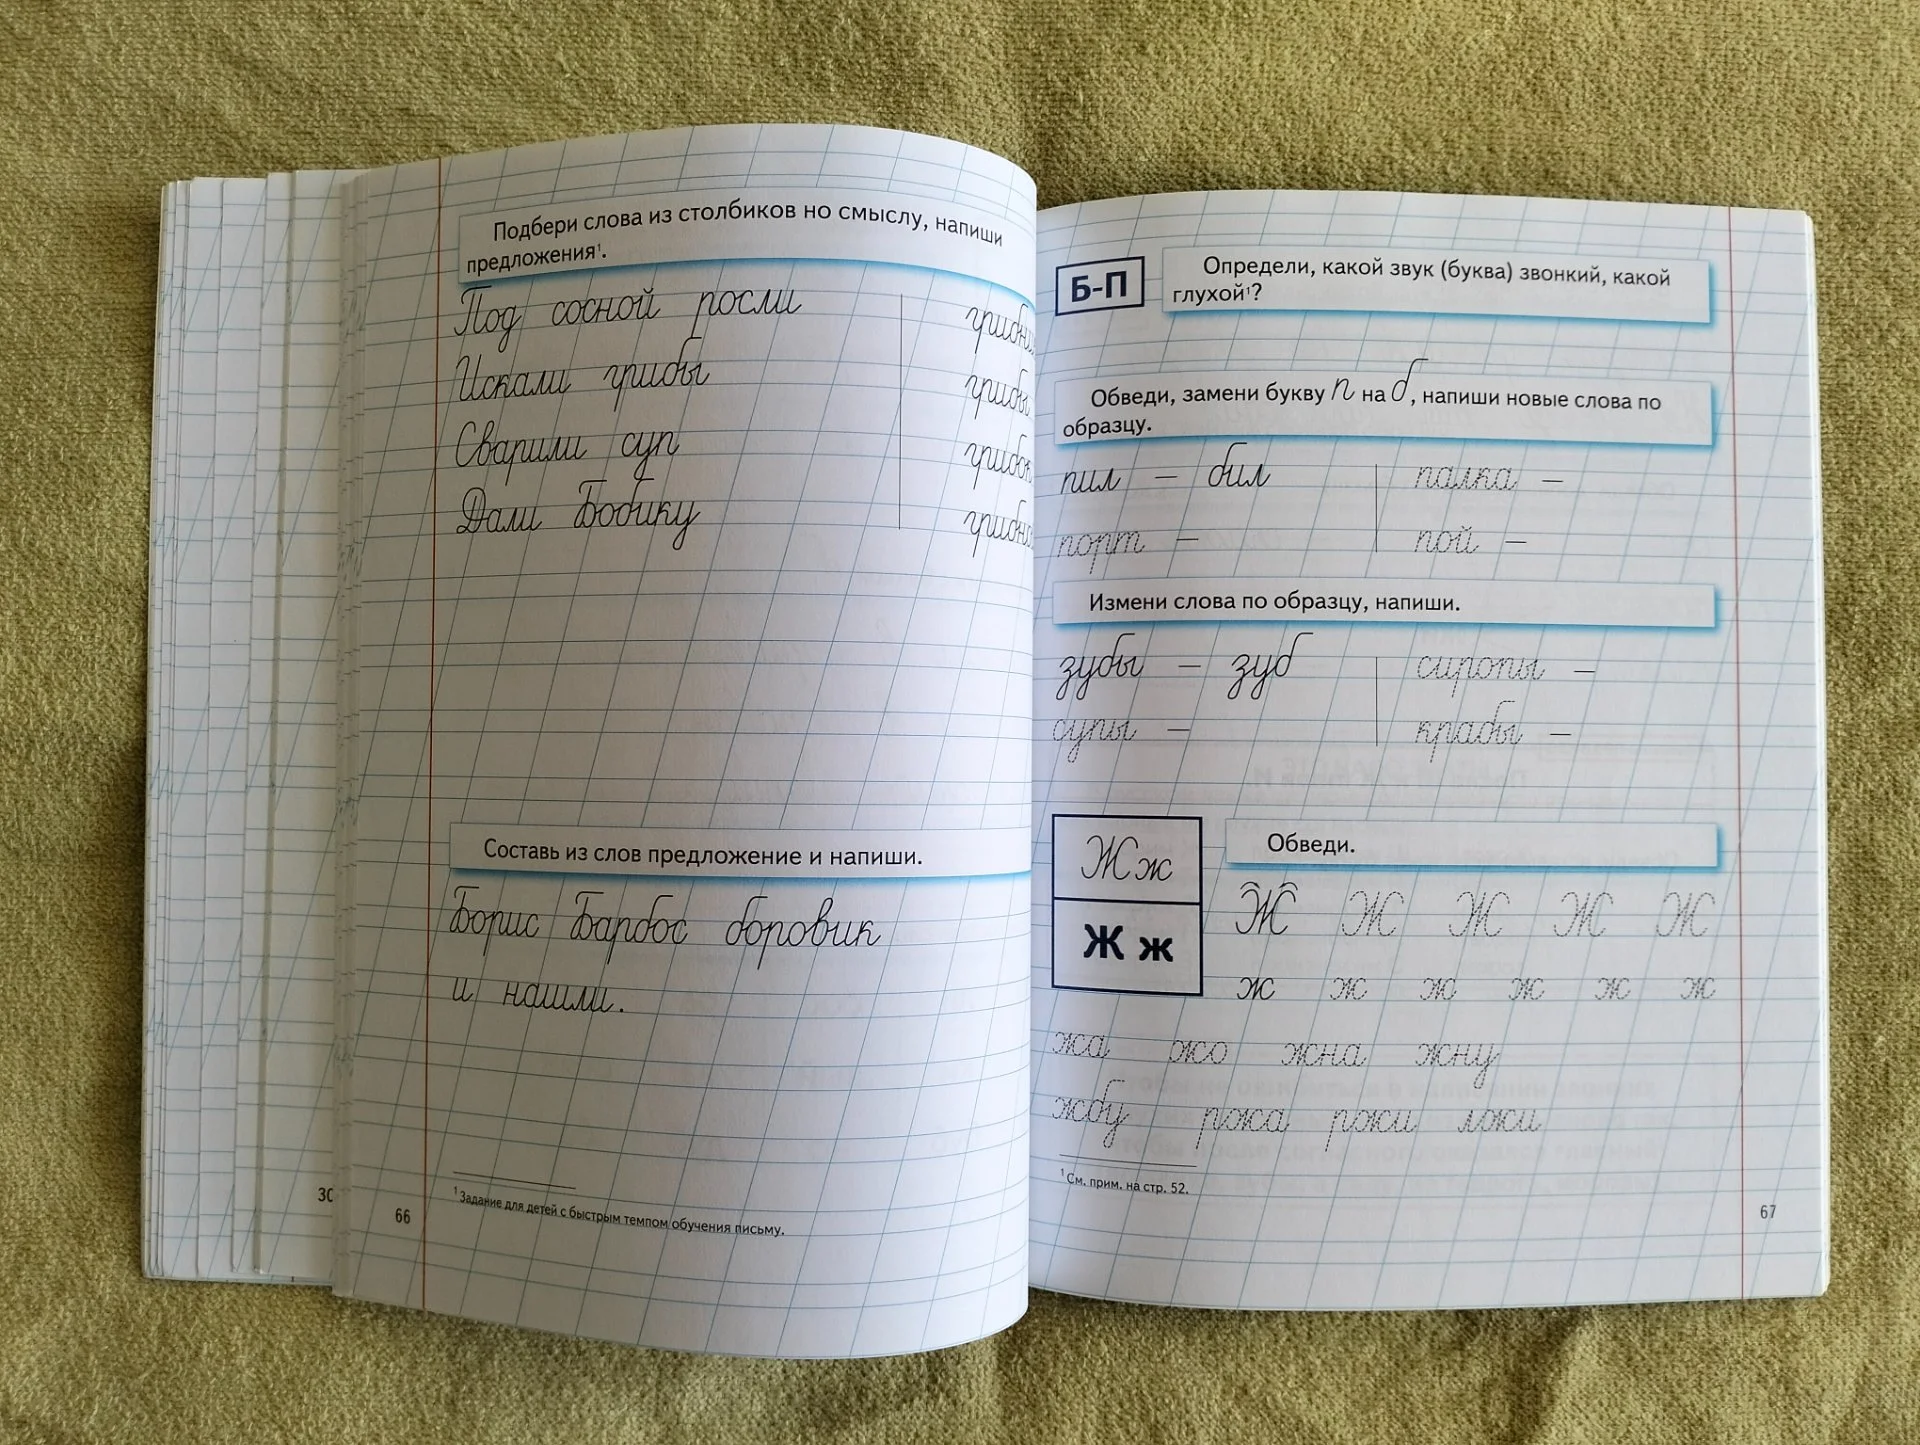 Подбери слова из столбиков но смыслу, напиши
предложения¹.
Под сосной росли
Искали грибы
Сварили суп
Дали Бобику
Составь из слов предложение и напиши.
Борис Барбос боровик
и нашли.
¹ Задание для детей с быстрым темпом обучения письму.
30
66
Б-П
Определи, какой звук (буква) звонкий, какой
глухой¹?
Обведи, замени букву п на б, напиши новые слова по
образцу.
пил – бил палка –
порт – пой –
Измени слова по образцу, напиши.
зубы – зуб сиропы –
супы – крабы –
Ж ж
Ж ж
Обведи.
Ж Ж Ж Ж Ж
ж ж ж ж ж ж
жа жо жна жну
жбу ржа ржи лжи
¹ См. прим. на стр. 52.
67